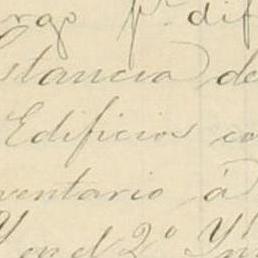 argo pr. dif
stancia de
Edificios co
ventario á
en el 2º